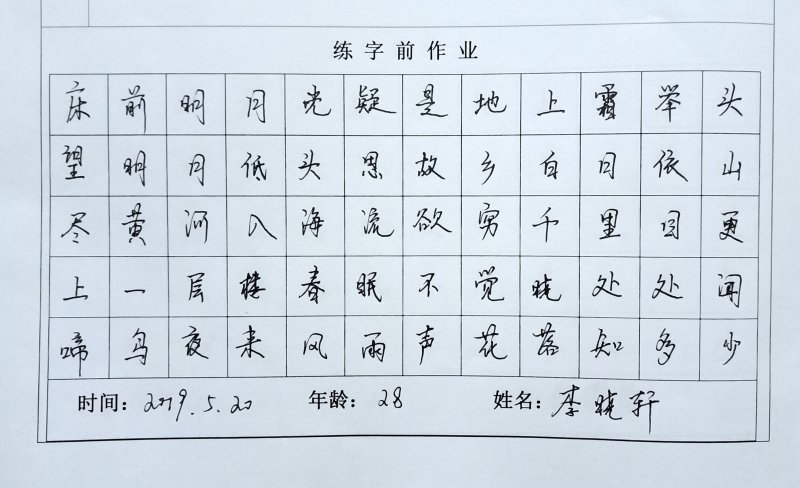 练字前作业
床前明月光疑是地上霜举头
望明月低头思故乡白日依山
尽黄河入海流欲穷千里目更
上一层楼春眠不觉晓处处闻
啼鸟夜来风雨声花落知多少
时间：2019.5.20 年龄：28 姓名：李晓轩